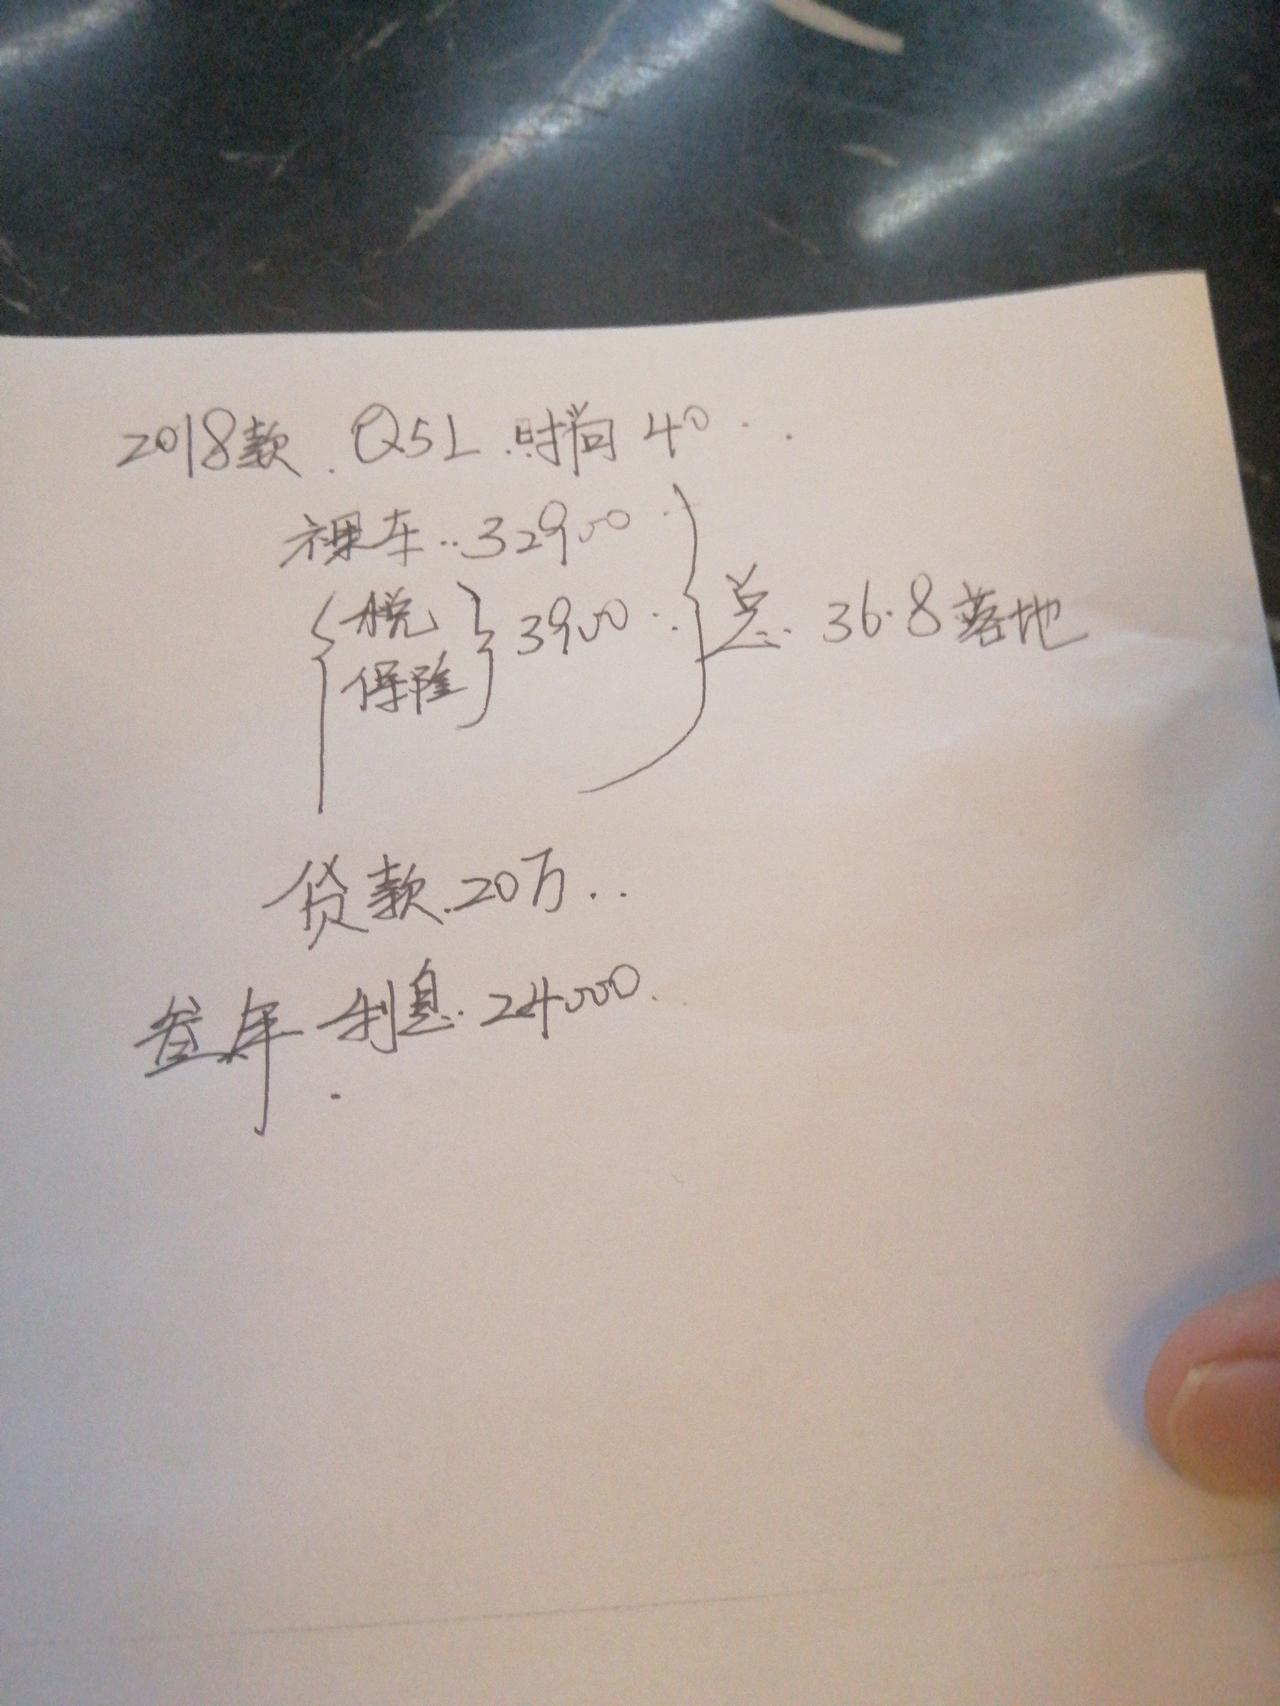 2018款. Q5L 时尚 40..
裸车..32900
{税 保险} 3900.. 总. 36.8落地
贷款.20万..
叁年 利息.24000.